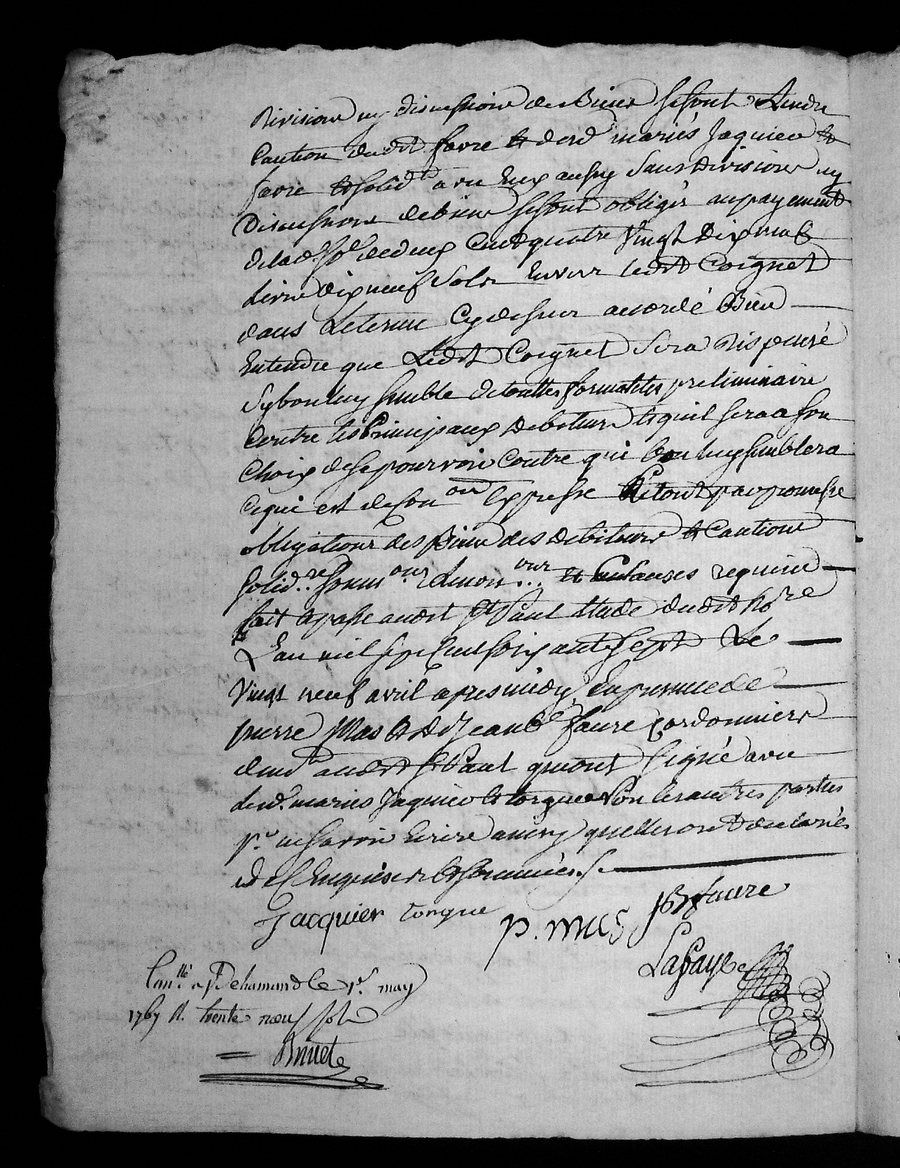 Division ny discussion de Biens se sont Rendu
Caution dudt favre & desd mariés Jaquier &
favre & solidt avec Eux aussy sans division ny
Discussion de biens se sont obligés au payement
de lade so.e de deux Cent quatre Vingt Dix neuf
Livre dix neuf Sols Envers ledt Coignet
dans Le terme Cydessus accordé Bien
Entendu que Ledt Coignet Sera Dispensé
Sy bon luy semble de touttes formalités preliminaire
Contre les Principaux debiteurs & quil sera a son
Choix de se pourvoir Contre qui bon luy semblera
Ce qui est de Con on Expresse Et tout par promesse
obligations des Biens des debiteurs & Cautions
solid..re soum ons renon ons et Clauses requise
fait & passé audt St Paul Etude dudt nore
L'an mil sept Cent soixante sept Le
Vingt neuf avril apres midy En presence de
pierre Mas & de Jean Be faure Cordonniers
dud audt St Paul qui ont signé avec
lesd. mariés Jaquier & torgue Non les autres parties
pr. ne savoir Ecrire ainsy quelles ont declarés
de ce Enquises & sommées
Jacquier torgue
p. mas jB faure
Lapaye
Conllé a St chamond le 1er may
1767 R. trente neuf sols